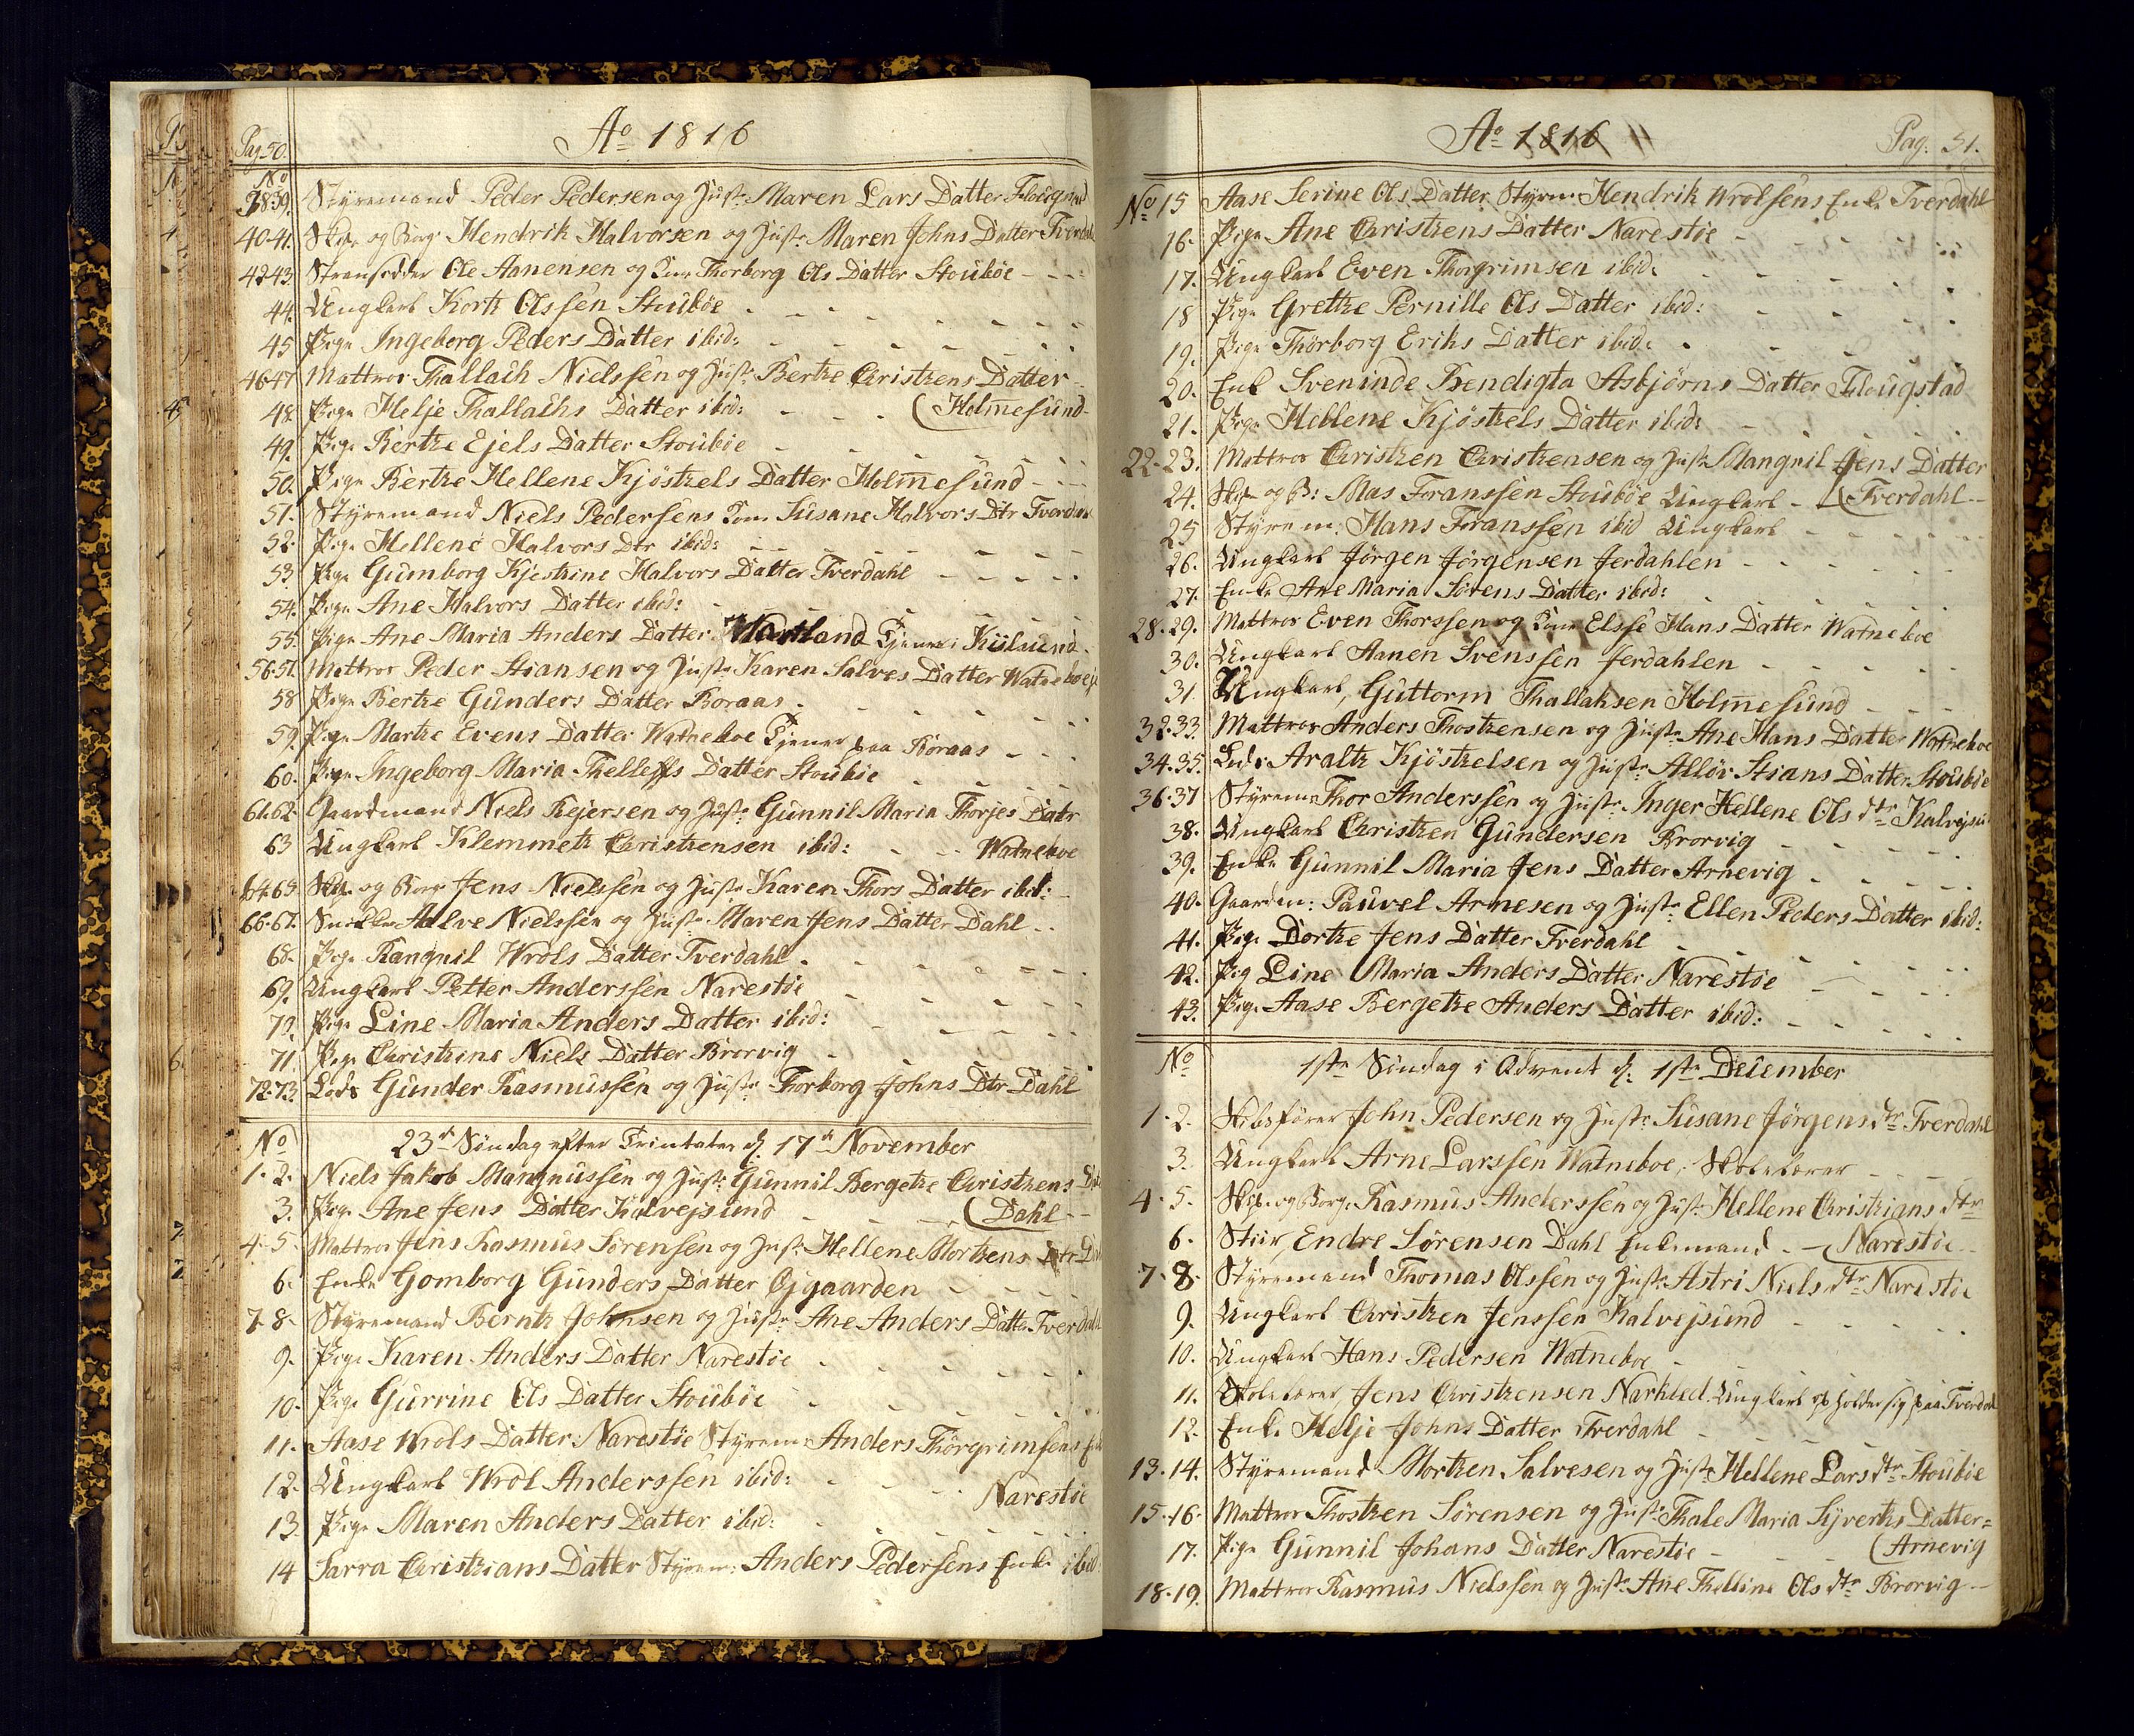 Pag. 50.
Ao 1816
No
38.39. Styremand Peder Pedersen og Hustr: Maren Lars Datter Flougstad
40-41. Skip. og Borg. Hendrik Halvorsen og Hustr. Maren Johns Datter Tverdahl
42.43. Stransedder Ole Aanensen og Kone Thorborg Ols Datter Stouböe
44. Ungkarl Korth Olssen Stouböe
45 Pige Ingeborg Peders Datter ibid:
46.47 Mattros Thallach Nielssen og Hustr. Berthe Christhens Datter
48 Pige Helje Thallachs Datter ibid: (Holmesund
49. Pige Berthe Ejels Datter Stouböe
50. Pige Berthe Hellene Kjösthels Datter Holmesund
51. Styremand Niels Pedersens Kone Susane Halvors Dtr Tverdahl
52. Pige Hellene Halvors Dtr ibid:
53. Pige Gumborg Kjestine Halvors Datter Tverdahl
54. Pige Ane Halvors Datter ibid:
55. Pige Ane Maria Anders Datter Kiilsund
56.57. Mattros Peder Stiansen og Hustr. Karen Salves Datter Watneboe
58 Pige Berthe Gunders Datter Boraas
59. Pige Marthe Evens Datter Watneboe Tjener paa Boraas
60. Pige Ingeborg Maria Thelleffs Datter Stouböe
61.62. Gaardmand Niels Rejersen og Hustr: Gunnil Maria Thorjes Datr
63 Ungkarl Klemmeth Christhensen ibid: Watneboe
64.65 Skip. og Borg. Jens Nielssen og Hustr. Karen Thors Datter ibid:
66.67. Snidker Aalve Nielssen og Hustr. Maren Jens Datter Dahl
68. Pige Rangnil Wrols Datter Tverdahl
69. Ungkarl Petter Anderssen Narestöe
70. Pige Line Maria Anders Datter ibid:
71. Pige Christhine Niels Datter Brorvig
72.73. Lods Gunder Rasmussen og Hustr. Thorborg Johns Dtr Dahl
No 23de Söndag efter Trinitates d. 17de November
1.2. Niels Jakob Mangnussen og Hustr: Gunnil Bergethe Christhens Dtr
3. Pige Ane Jens Datter Kalvejsund (Dahl
4.5. Mattros Jens Rasmus Sörensen og Hustr. Hellene Morthens Dtr
6. Enke Gomborg Gunders Datter Öjgaarden
7.8. Styremand Bernth Johnsen og Hustr. Ane Anders Datter Tverdahl
9. Pige Karen Anders Datter Narestöe
10. Pige Gurrine Ols Datter Stouböe
11. Aase Wrols Datter Narestöe Styrem: Anders Thorgrimsens Enke
12. Ungkarl Wrol Anderssen ibid: Narestöe
13. Pige Maren Anders Datter ibid:
14 Sarra Christhians Datter Styrem: Anders Pedersens Enke ibid
Ao 1816
Pag. 51.
No 15 Aase Serine Ols Datter Styrm. Hendrik Wrolsens Enke Tverdahl
16. Pige Ane Christhens Datter Narestöe
17. Ungkarl Even Thorgrimsen ibid:
18 Pige Grethe Pernille Ols Datter ibid:
19. Pige Thörborg Eriks Datter ibid:
20. Enk Sveninde Bendigta Asbjörns Datter Flougstad
21. Pige Hellene Kjösthels Datter ibid:
22.23. Mattros Christhen Christhensen og Hustr. Mangnil Jens Datter
24. Skip og B: Mas Franssen Stouböe Ungkarl (Tverdahl
25 Styrem: Hans Franssen ibid Ungkarl
26. Ungkarl Jörgen Jörgensen Jerdahlen
27. Enke Ane Maria Sörens Datter ibid:
28.29. Mattros Even Thorssen og Kone Elsse Hans Datter Watneboe
30. Ungkarl Aanen Svenssen Jerdahlen
31. Ungkarl, Guttorm Thallaksen Holmesund
32.33. Mattros Anders Thosthensen og Hustr. Ane Hans Datter Watneboe
34.35. Lods Aralth Kjösthelsen og Hustr. Allöv Stians Datter Stouböe
36.37 Styrem: Thor Anderssen og Hustr. Inger Hellene Ols dtr Kalvejsu
38. Ungkarl Christhen Gundersen Brorvig
39. Enke Gunnil Maria Jens Datter Arnevig
40. Gaardm: Pauvel Arnesen og Hustr. Ellen Peders Datter ibid:
41. Pige Dorthe Jens Datter Tverdahl
42. Pig Line Maria Anders Datter Narestöe
43. Pige Aase Bergethe Anders Datter ibid:
No 1ste Söndag i Advent d. 1ste December
1.2. Skibsförer John Pedersen og Hustr. Susane Jörgens dtr Tverdahl
3. Ungkarl Arne Larssen Watneboe, Skolelærer
4.5. Skip. og Borg. Rasmus Anderssen og Hustr. Hellene Christhians dtr
6. Stür, Endre Sörensen Dahl Enkemand (Narestöe
7.8. Styremand Thomas Olssen og Hustr. Astri Niels dtr Narestöe
9. Ungkarl Christhen Jenssen Kalvejsund
10. Ungkarl Hans Pedersen Watneboe
11. Skolelærer, Jens Christhensen Narkled. Ungkarl opholder sig paa Tverdal
12. Enke Helje Johns Datter Tverdahl
13.14. Styremand Morthen Salvesen og Hustr. Hellene Lars dtr Stouböe
15.16. Mattros Thosthen Sörensen og Hustr. Thale Maria Syverths Datter=
17. Pige Gunnil Johans Datter Narestöe (Arnevig
18.19. Mattros Rasmus Nielssen og Hustr. Ane Thelline Ols dtr Brorvig